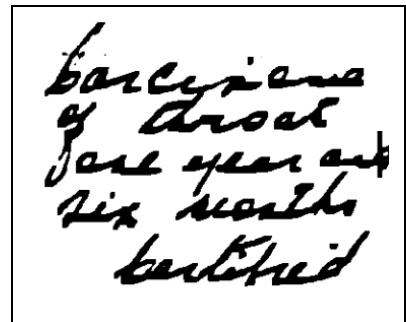 Carcinoma
of throat
one year and
six months
Certified